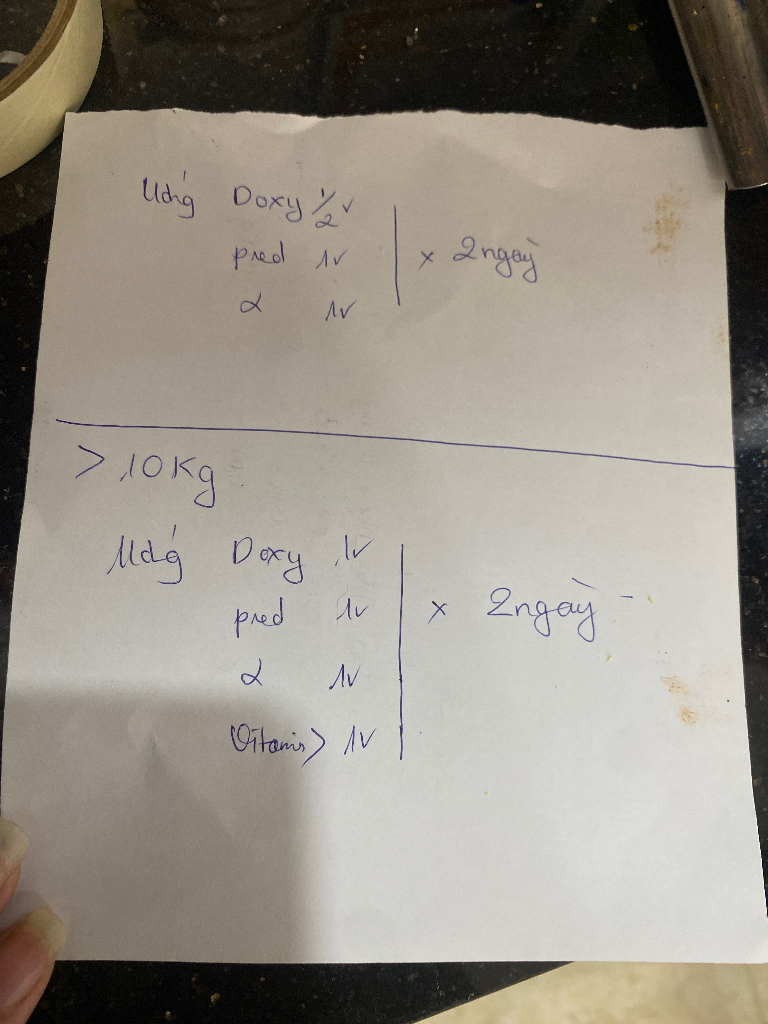 Uống Doxy 1/2 v
pred 1v
α 1v
x 2 ngày
> 10 Kg
Uống Doxy 1v
pred 1v
α 1v
x 2 ngày
1v